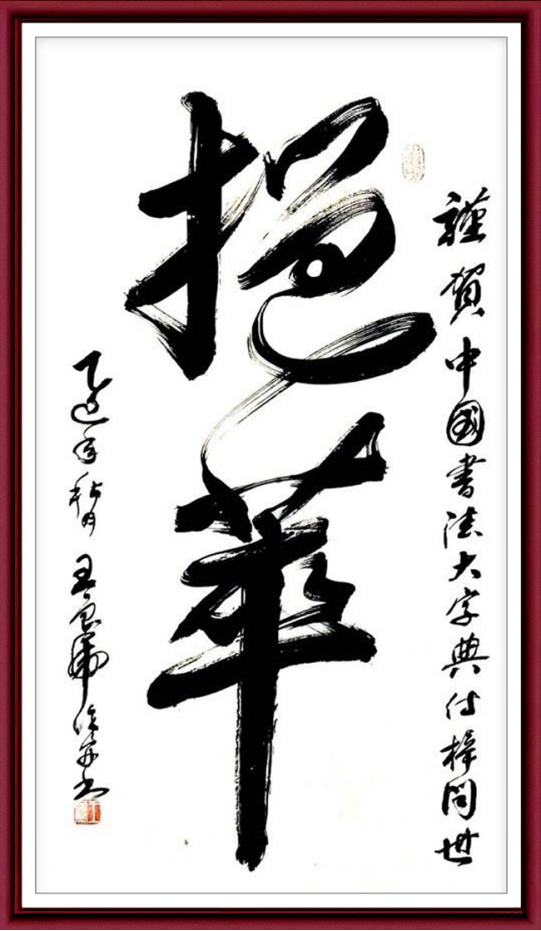 謹賀中國書法大字典付梓問世
挹華
乙酉年秋月 王